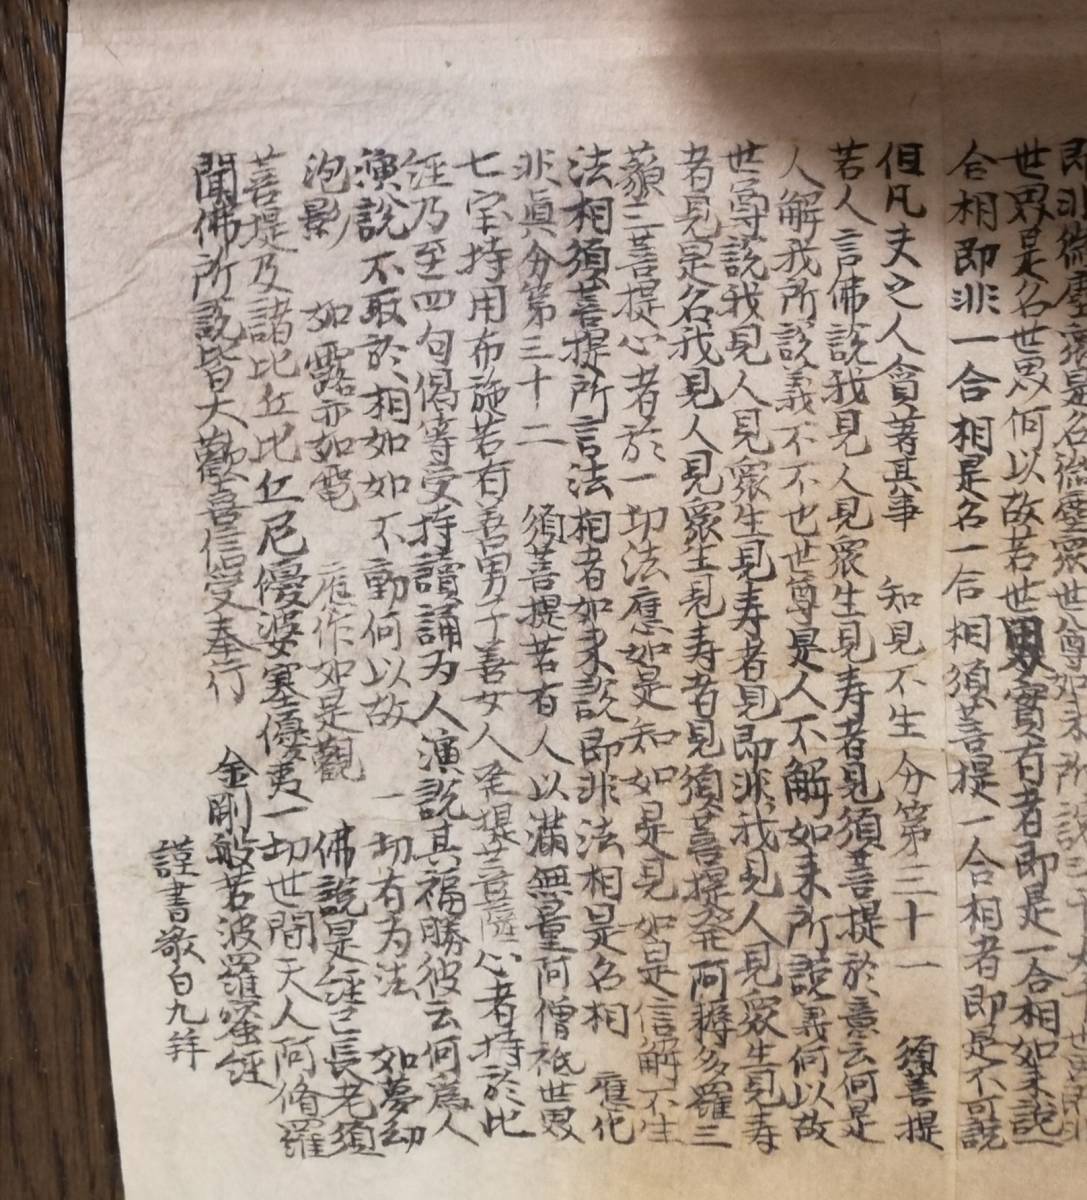 即非微塵衆是名微塵衆世尊如来所說三千大千世界即非
世界是名世界何以故若世界實有者即是一合相如来說一
合相即非一合相是名一合相須菩提一合相者即是不可說
但凡夫之人貪著其事 知見不生分第三十一 須菩提
若人言佛說我見人見衆生見寿者見須菩提於意云何是
人解我所說義不不也世尊是人不解如来所說義何以故
世尊說我見人見衆生見寿者見即非我見人見衆生見寿
者見是名我見人見衆生見寿者見須菩提発阿耨多羅三
藐三菩提心者於一切法應如是知如是見如是信解不生
法相須菩提所言法相者如来說即非法相是名相 應化
非眞分第三十二 須菩提若有人以滿無量阿僧祇世界
七宝持用布施若有善男子善女人発提菩薩心者持於此
経乃至四句偈等受持讀誦为人演說其福勝彼云何為人
演說不取於相如如不動何以故 一切有为法 如夢幻
泡影 如露亦如電 應作如是觀 佛說是経已長老須
菩提及諸比丘比丘尼優婆塞優夷一切世間天人阿脩羅
聞佛所說皆大歡喜信受奉行 金剛般若波羅蜜経
謹書敬白九拜